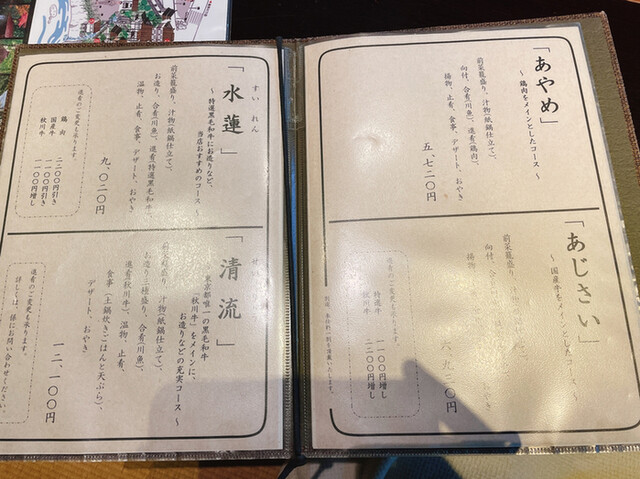 「あやめ」
～ 鶏肉をメインとしたコース ～
前菜籠盛り、汁物(紙鍋仕立て)、
向付、合肴(川魚)、進肴(鶏肉)、
揚物、止肴、食事、デザート、おやき
五、七二〇円
「あじさい」
～ 国産牛をメインとしたコース ～
前菜籠盛り、汁物
向付、合肴(川魚)
揚物
六、九二〇円
進肴のご変更も承ります。
特選牛 一一〇〇円増し
秋川牛 二二〇〇円増し
別途、本体料一割を頂戴いたします。
すいれん
「水蓮」
～ 特選黒毛和牛にお造りなど、
当店おすすめのコース ～
前菜籠盛り、汁物(紙鍋仕立て)、
お造り、合肴(川魚)、進肴(特選黒毛和牛)、
温物、止肴、食事、デザート、おやき
九、〇二〇円
進肴のご変更も承ります。
鶏肉 二二〇〇円引き
国産牛 一一〇〇円引き
秋川牛 一一〇〇円増し
せい
「清流」
東京都唯一の黒毛和牛
「秋川牛」をメインに、
お造りなどの充実コース ～
前菜籠盛り、汁物(紙鍋仕立て)、
お造り三種盛り、合肴(川魚)、
進肴(秋川牛)、温物、止肴、
食事(土鍋炊きごはんと天ぷら)、
デザート、おやき
一二、一〇〇円
進肴のご変更も承ります。
詳しくは、係にお問い合わせください。